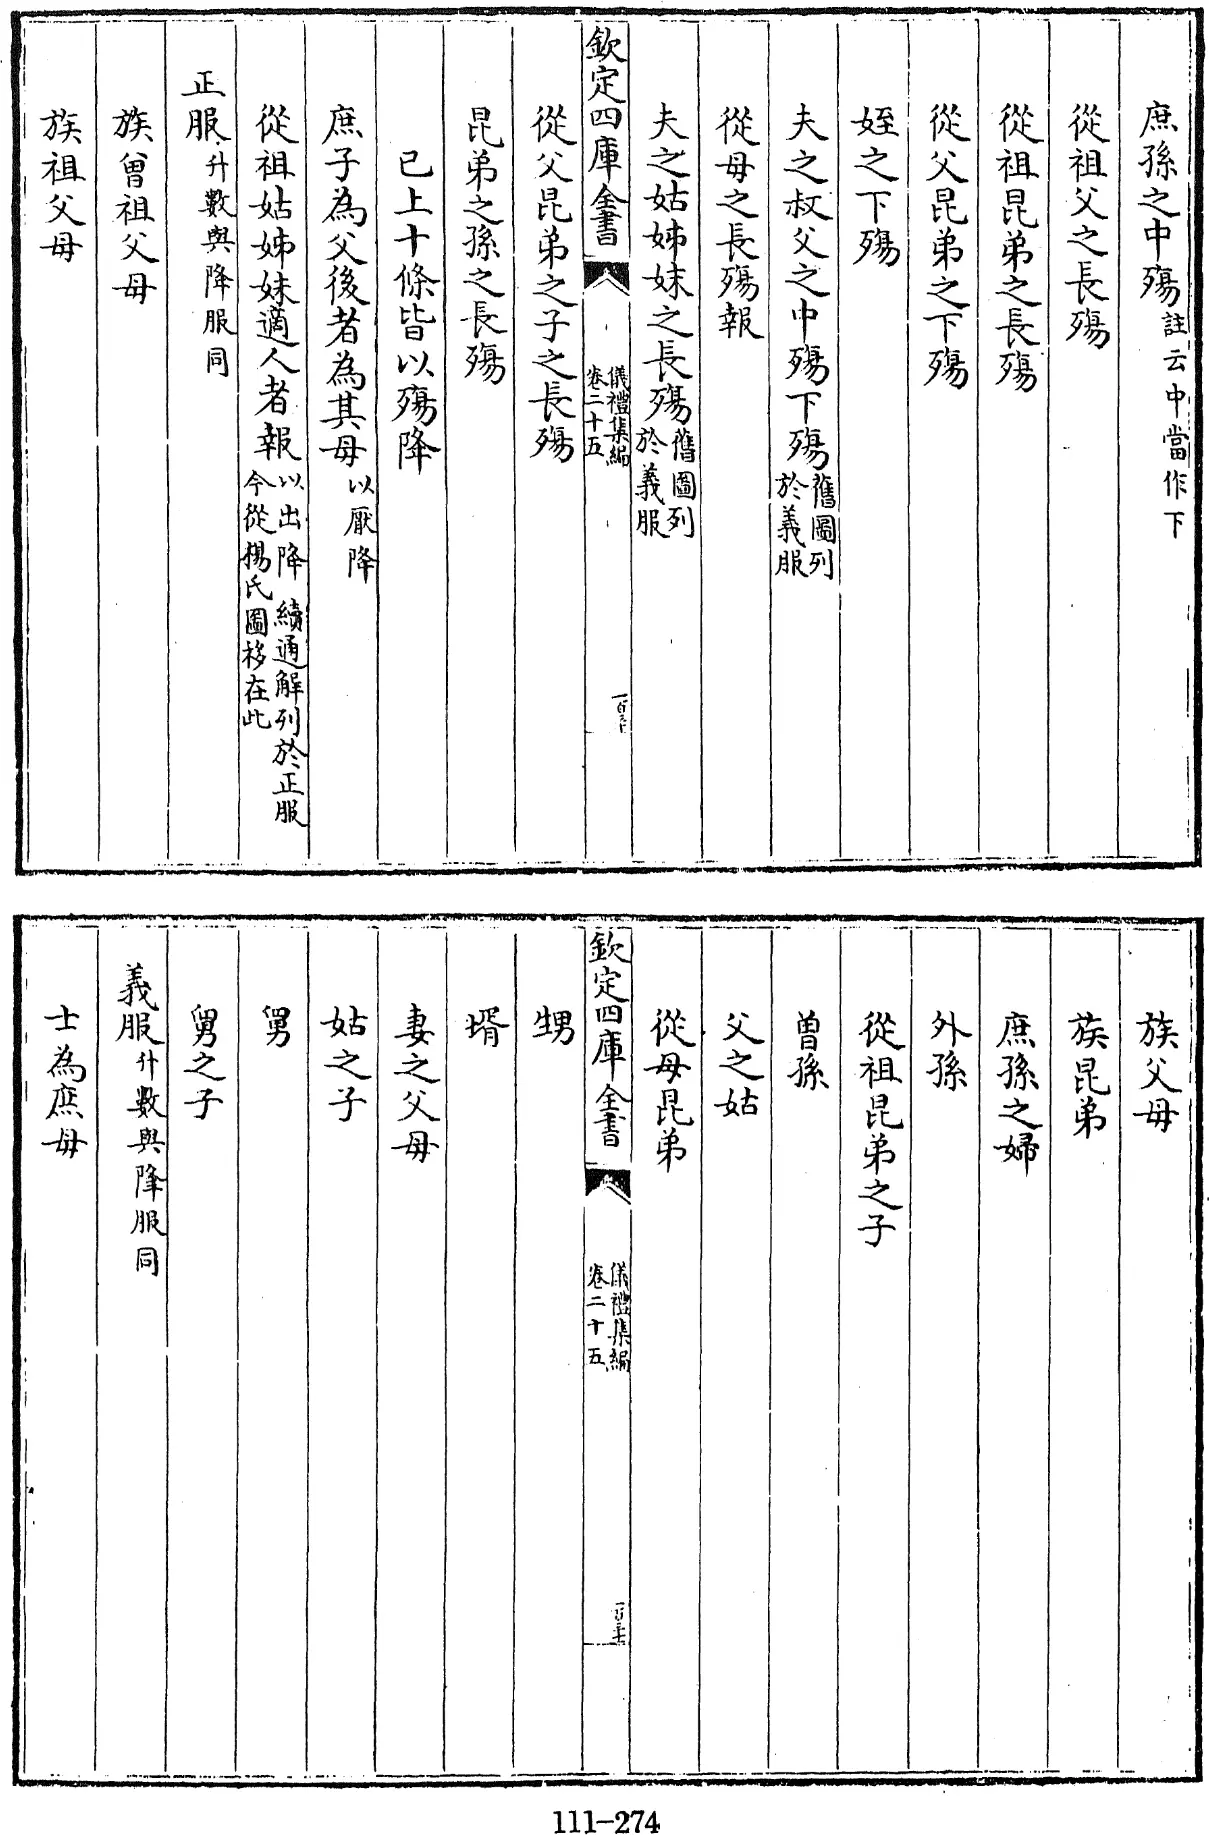 庶孫之中殤註云中當作下
從祖父之長殤
從祖昆弟之長殤
從父昆弟之下殤
姪之下殤
夫之叔父之中殤下殤舊圖列於義服
從母之長殤報
夫之姑姊妹之長殤舊圖列於義服
欽定四庫全書
儀禮集編
卷二十五
從父昆弟之子之長殤
昆弟之孫之長殤
已上十條皆以殤降
庶子為父後者為其母以厭降
從祖姑姊妹適人者報以出降 續通解列於正服今從楊氏圖移在此
正服升數與降服同
族曾祖父母
族祖父母
族父母
族昆弟
庶孫之婦
外孫
從祖昆弟之子
曾孫
父之姑
從母昆弟
欽定四庫全書
儀禮集編
卷二十五
甥
壻
妻之父母
姑之子
舅
舅之子
義服升數與降服同
士為庶母
111-274